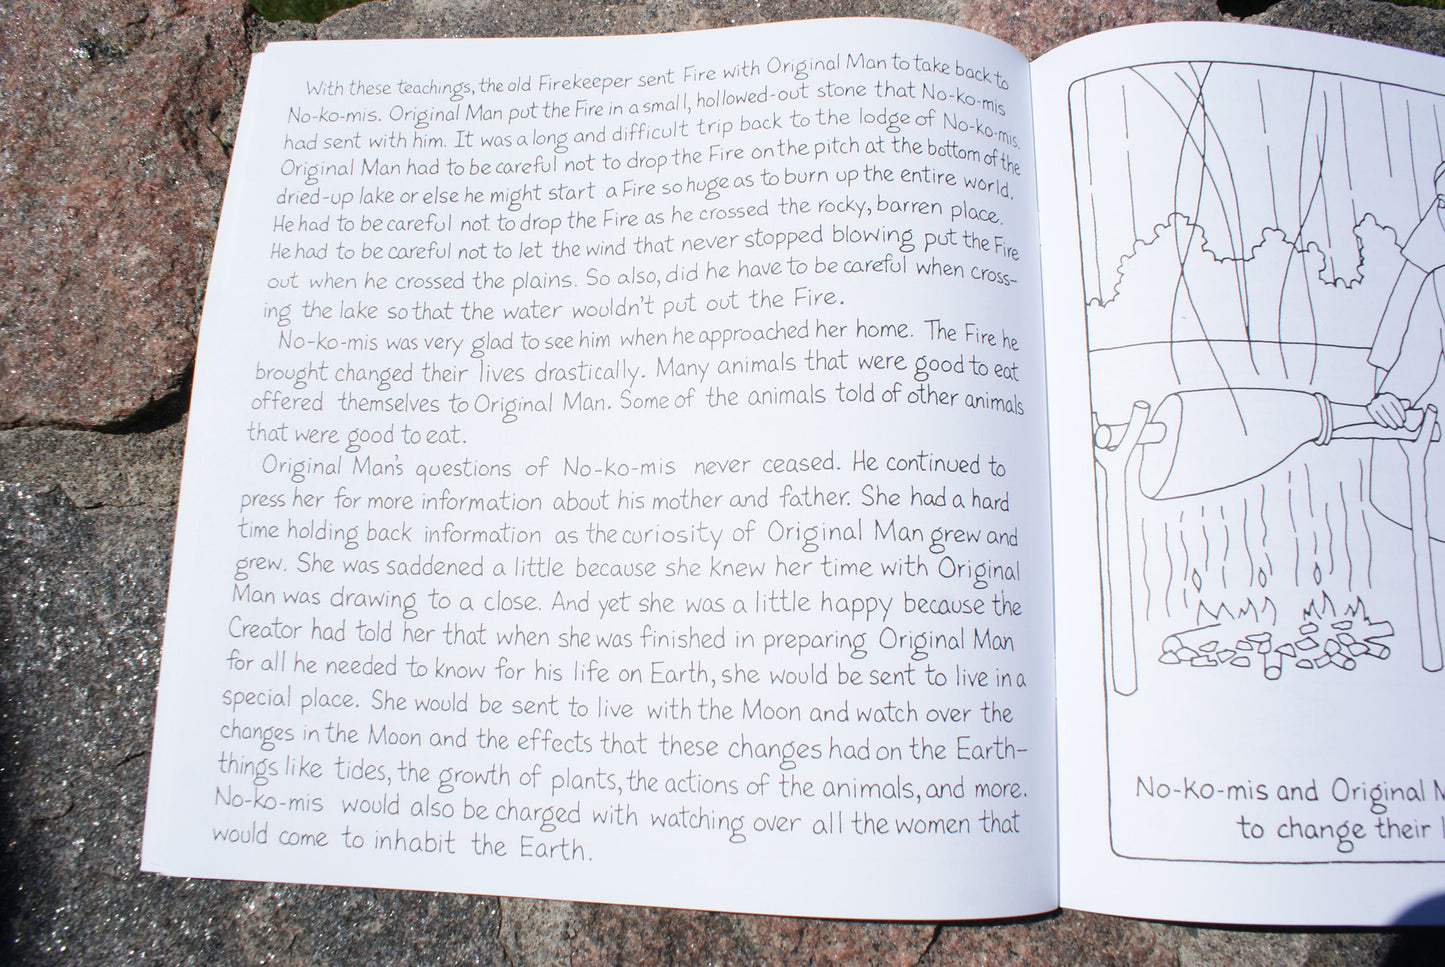 With these teachings, the old Firekeeper sent Fire with Original Man to take back to
No-ko-mis. Original Man put the Fire in a small, hollowed-out stone that No-ko-mis
had sent with him. It was a long and difficult trip back to the lodge of No-ko-mis.
Original Man had to be careful not to drop the Fire on the pitch at the bottom of the
dried-up lake or else he might start a Fire so huge as to burn up the entire world.
He had to be careful not to drop the Fire as he crossed the rocky, barren place.
He had to be careful not to let the wind that never stopped blowing put the Fire
out when he crossed the plains. So also, did he have to be careful when cross-
ing the lake so that the water wouldn't put out the Fire.
No-ko-mis was very glad to see him when he approached her home. The Fire he
brought changed their lives drastically. Many animals that were good to eat
offered themselves to Original Man. Some of the animals told of other animals
that were good to eat.
Original Man's questions of No-ko-mis never ceased. He continued to
press her for more information about his mother and father. She had a hard
time holding back information as the curiosity of Original Man grew and
grew. She was saddened a little because she knew her time with Original
Man was drawing to a close. And yet she was a little happy because the
Creator had told her that when she was finished in preparing Original Man
for all he needed to know for his life on Earth, she would be sent to live in a
special place. She would be sent to live with the Moon and watch over the
changes in the Moon and the effects that these changes had on the Earth-
things like tides, the growth of plants, the actions of the animals, and more.
No-ko-mis would also be charged with watching over all the women that
would come to inhabit the Earth.
No-Ko-mis and Original
to change their